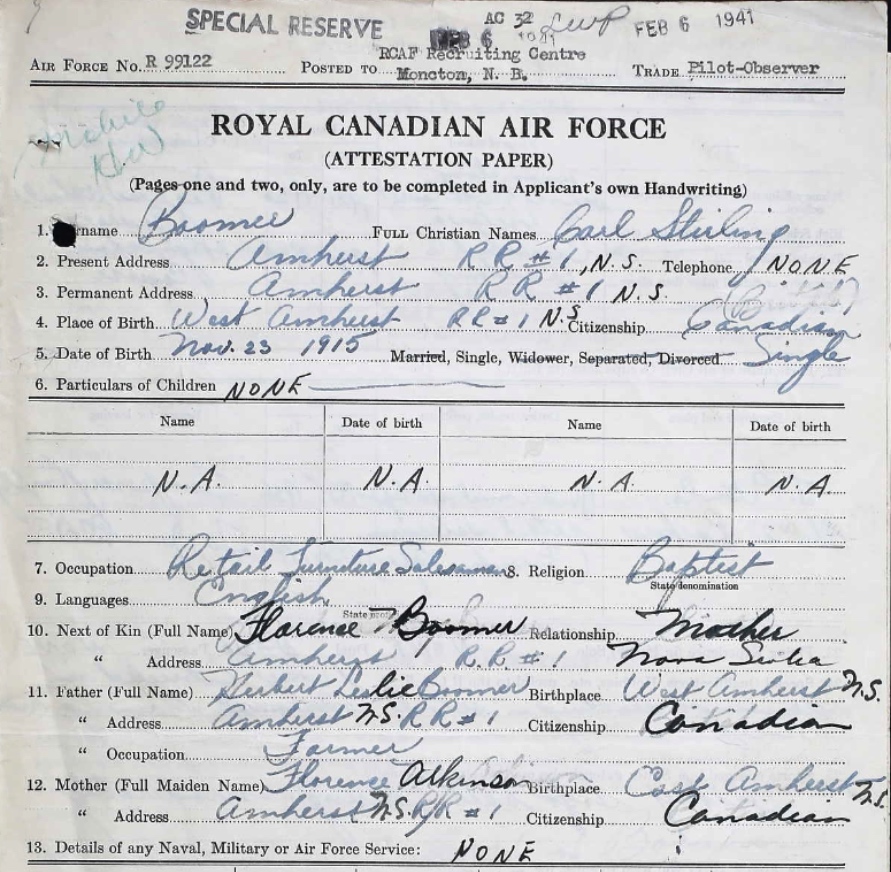 SPECIAL RESERVE AC 32 FEB 6 1941
FEB 6
AIR FORCE No. R 99122 POSTED TO RCAF Recruiting Centre Moncton, N. B. TRADE Pilot-Observer
ROYAL CANADIAN AIR FORCE
(ATTESTATION PAPER)
(Pages one and two, only, are to be completed in Applicant's own Handwriting)
1. rname Boomer FULL Christian Names Carl Stirling
2. Present Address Amherst RR #1, N.S. Telephone NONE
3. Permanent Address Amherst RR #1 N.S.
4. Place of Birth West Amherst RR #1 N.S. Citizenship Canadian
5. Date of Birth Nov. 23 1915 Married, Single, Widower, Separated, Divorced Single
6. Particulars of Children NONE
Name Date of birth Name Date of birth
N.A. N.A. N.A. N.A.
7. Occupation Retail Furniture Salesman 8. Religion Baptist
State denomination
9. Languages English
10. Next of Kin (Full Name) Florence Boomer Relationship Mother
" Address Amherst R.R. #1 Nova Scotia
11. Father (Full Name) Herbert Leslie Boomer Birthplace West Amherst N.S.
" Address Amherst N.S. RR #1 Citizenship Canadian
" Occupation Farmer
12. Mother (Full Maiden Name) Florence Atkinson Birthplace East Amherst N.S.
" Address Amherst N.S. RR #1 Citizenship Canadian
13. Details of any Naval, Military or Air Force Service: NONE